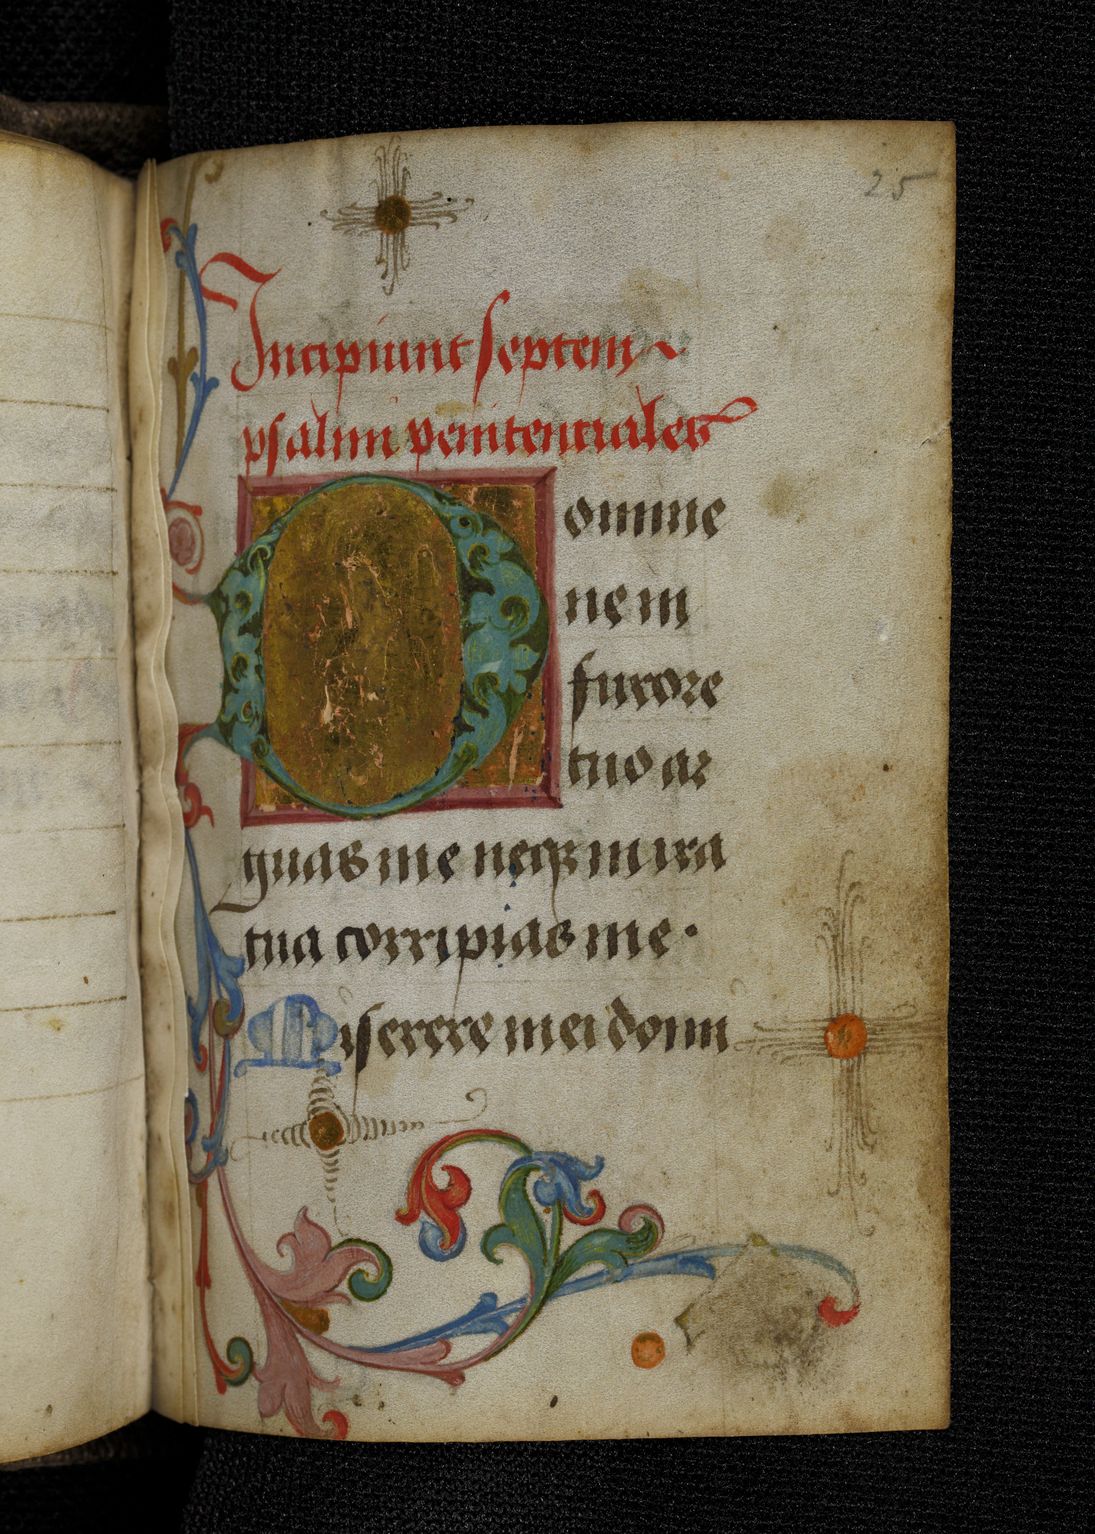 25
Incipiunt septem
psalmi penitenciales
Domine
ne in
furore
tuo ar
guas me neqꝫ in ira
tua corripias me.
Miserere mei domi